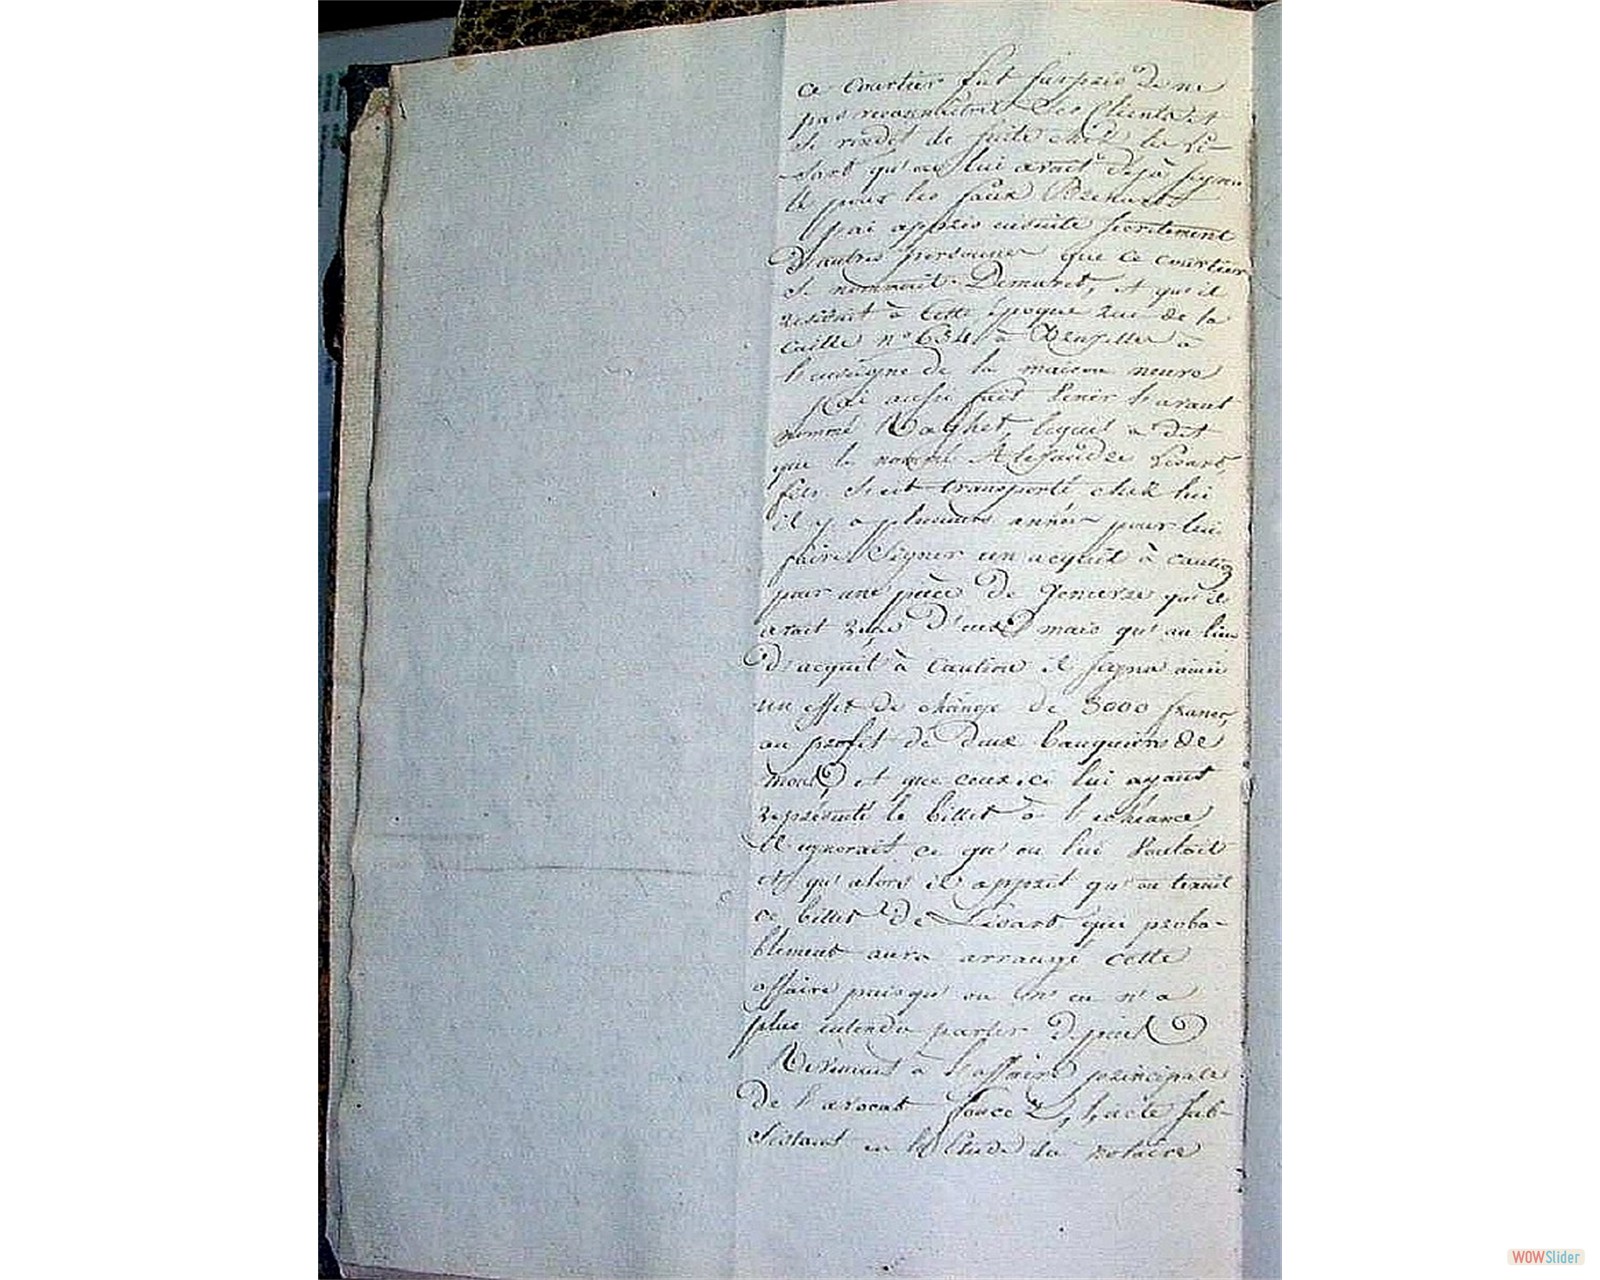 ce courtier fut surpris de ne
pas reconnaitre ses clients et
se rendit de suite chez les Li-
-sart qu'on lui avait déjà signa
lé pour les faux
j'ai appris ensuite secretement
d'autres personnes que ce courtier
se nommait Demaret, et qu'il
residait à cette époque rue de la
caille n° 634 à Bruxelles à
l'enseigne de la maison neuve
j'ai aussi fait venir l'avant
nommé lequel a dit
que le nommé Alexandre Lisart
fils s'est transporté chez lui
il y a plusieurs années pour lui
faire signer un acquit à caution
pour une pièce de genievre qu'il
avait reçue d'eux mais qu'au lieu
d'acquit à caution il signa ainsi
un effet de change de 3000 francs
au profit de deux banquiers de
mons, et que ceux ci lui ayant
représenté le billet à l'echéance
il ignorait ce qu'on lui vouloit
et qu'alors il apprit qu'on tenait
ce billet de Lisart qui proba-
blement aura arrangé cette
affaire puisqu'on n'en a
plus entendu parler depuis
Revenant à l'affaire principale
de l'avocat l'acte sub-
sistant en l'Etude du notaire
WOWSlider